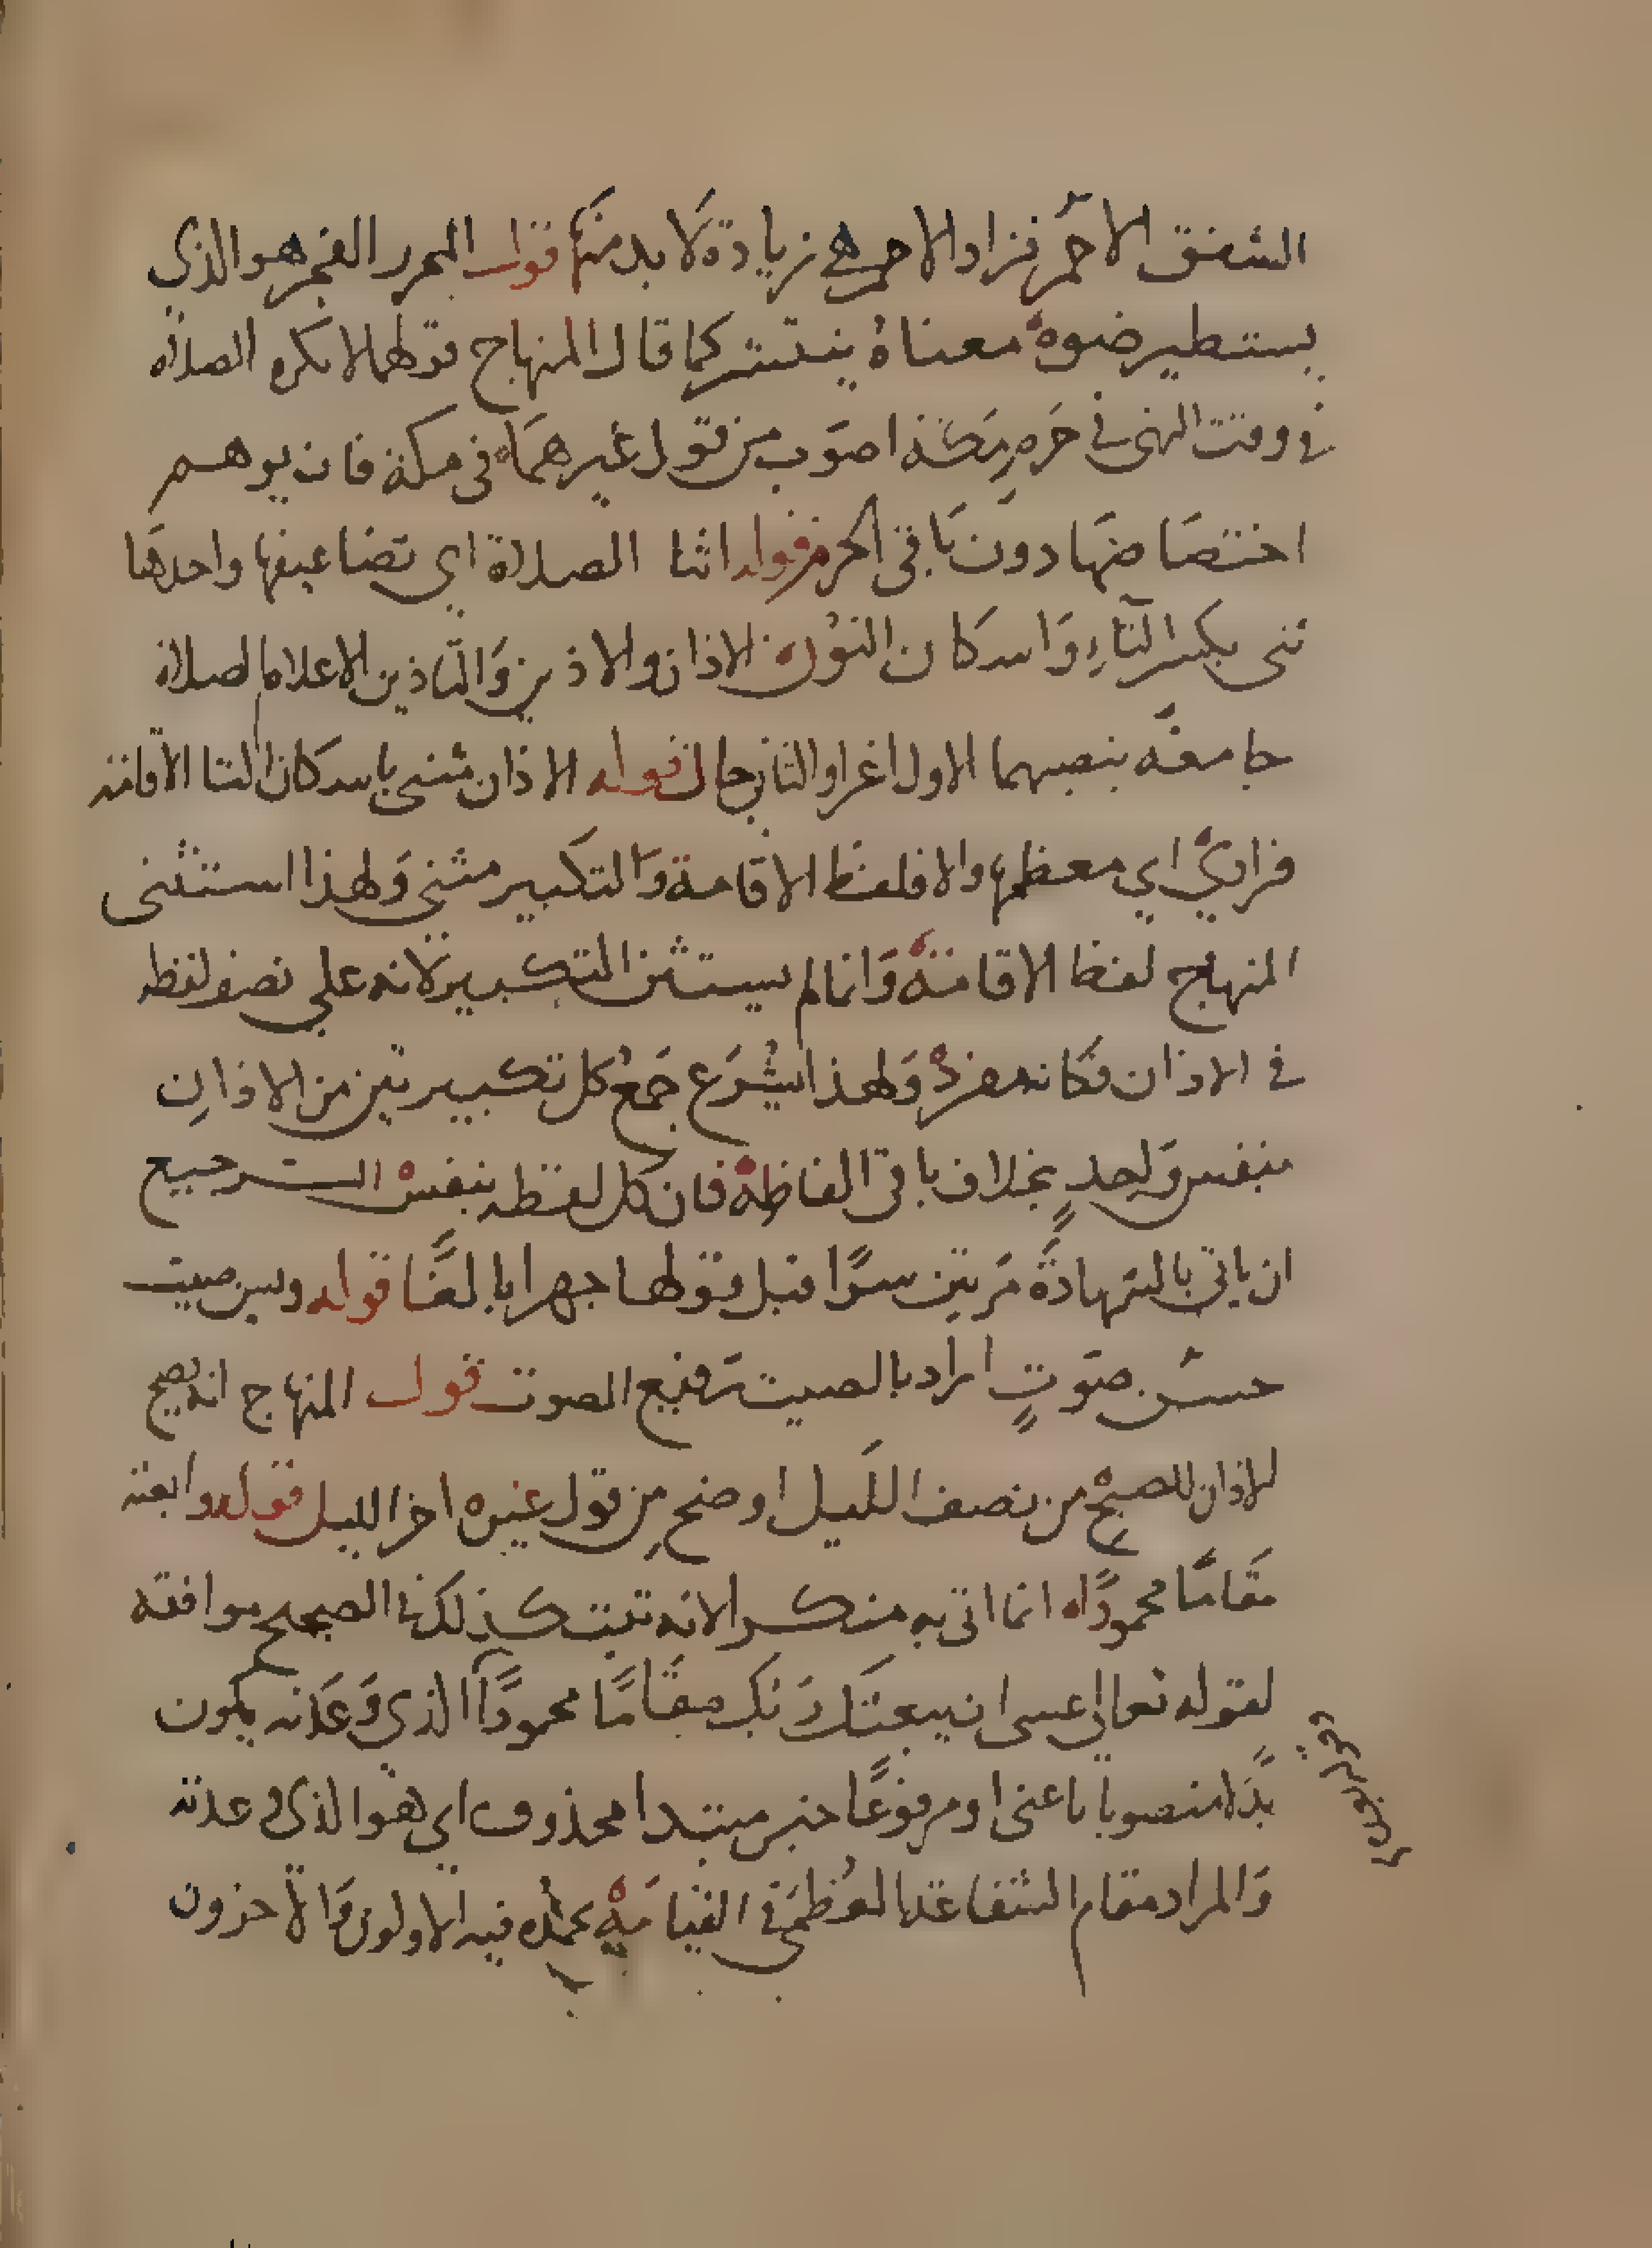 الشفق الاحمر فزاد الاحمر هي زيادة لا بد منها قول المحرر الفجر هو الذي
يستطير ضوه معناه ينتشر كما قال المنهاج قولهما لا تكره الصلاة
في وقت النهي في حرم مكة اصوب من قول غيرهما في مكة فانه يوهم
اختصاصها دون باقي الحرم قوله اثنا الصلاة اي تضاعيفها واحدها
ثني بكسر الثاء واسكان النون الاذان والاذين والتاذين الاعلام الصلاة
جامعة بنصبهما الاول اغرا والثاني حال قوله الاذان مثنى باسكان الثا الاقامة
فرادى اي معظمها والا فلفظ الاقامة والتكبير مثنى ولهذا استثنى
المنهاج لفظ الاقامة وانما لم يستثن التكبير لانه على نصف لفظه
في الاذان فكانه مفرد ولهذا يشرع جمع كل تكبيرتين من الاذان
بنفس واحد بخلاف باقي الفاظه فان كل لفظه بنفس الترجيع
ان ياتي بالشهادة مرتين سرا قبل قولها جهرا بابلغنا قوله ويسن صيت
حسن صوت اراد بالصيت رفيع الصوت قول المنهاج انه يصح
الاذان للصبح من نصف الليل اوضح من قول غيره اخر الليل قوله وابعثه
مقاما محمودا انما اتى به منكرا لانه ثبت كذلك في الصحيح موافقة
لقوله تعالى عسى ان يبعثك ربك مقاما محمودا الذي وعدته يكون
بدلا منصوبا باعني او مرفوعا خبر مبتدا محذوف اي هو الذي وعدته
والمراد مقام الشفاعة العظمى في القيامة يحمده فيه الاولون والاخرون